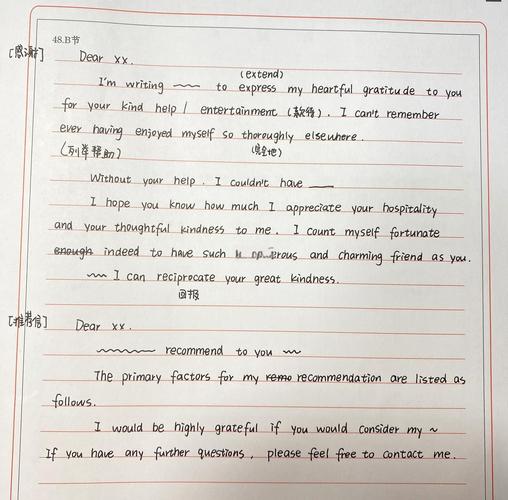 48.B节
[感谢书] Dear xx.
(extend)
I'm writing ~~ to express my heartful gratitude to you
for your kind help / entertainment (款待). I can't remember
ever having enjoyed myself so thoroughly elsewhere.
(列举帮助) (完全地)
Without your help. I couldn't have ___
I hope you know how much I appreciate your hospitality
and your thoughtful kindness to me. I count myself fortunate
enough indeed to have such and charming friend as you.
~~ I can reciprocate your great kindness.
回报
[推荐信] Dear xx.
~~~ recommend to you ~~
The primary factors for my remo recommendation are listed as
follows.
I would be highly grateful if you would consider my ~
If you have any further questions, please feel free to contact me.